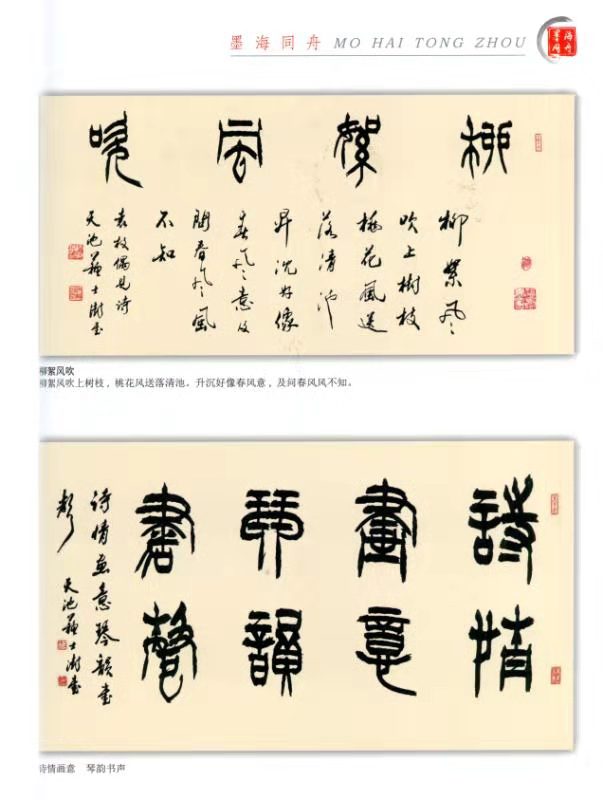 墨海同舟 MO HAI TONG ZHOU
柳絮風吹
柳絮风
吹上樹枝
桃花風送
落清池
昇沉好像
春风意及
問春风風
不知
袁枚偶見诗
天池蘇士澍書
柳絮风吹
柳絮风吹上树枝，桃花风送落清池。升沉好像春风意，及问春风风不知。
詩情
畫意
琴韻
書聲
诗情画意琴韻書
聲
天池蘇士澍書
诗情画意　琴韵书声